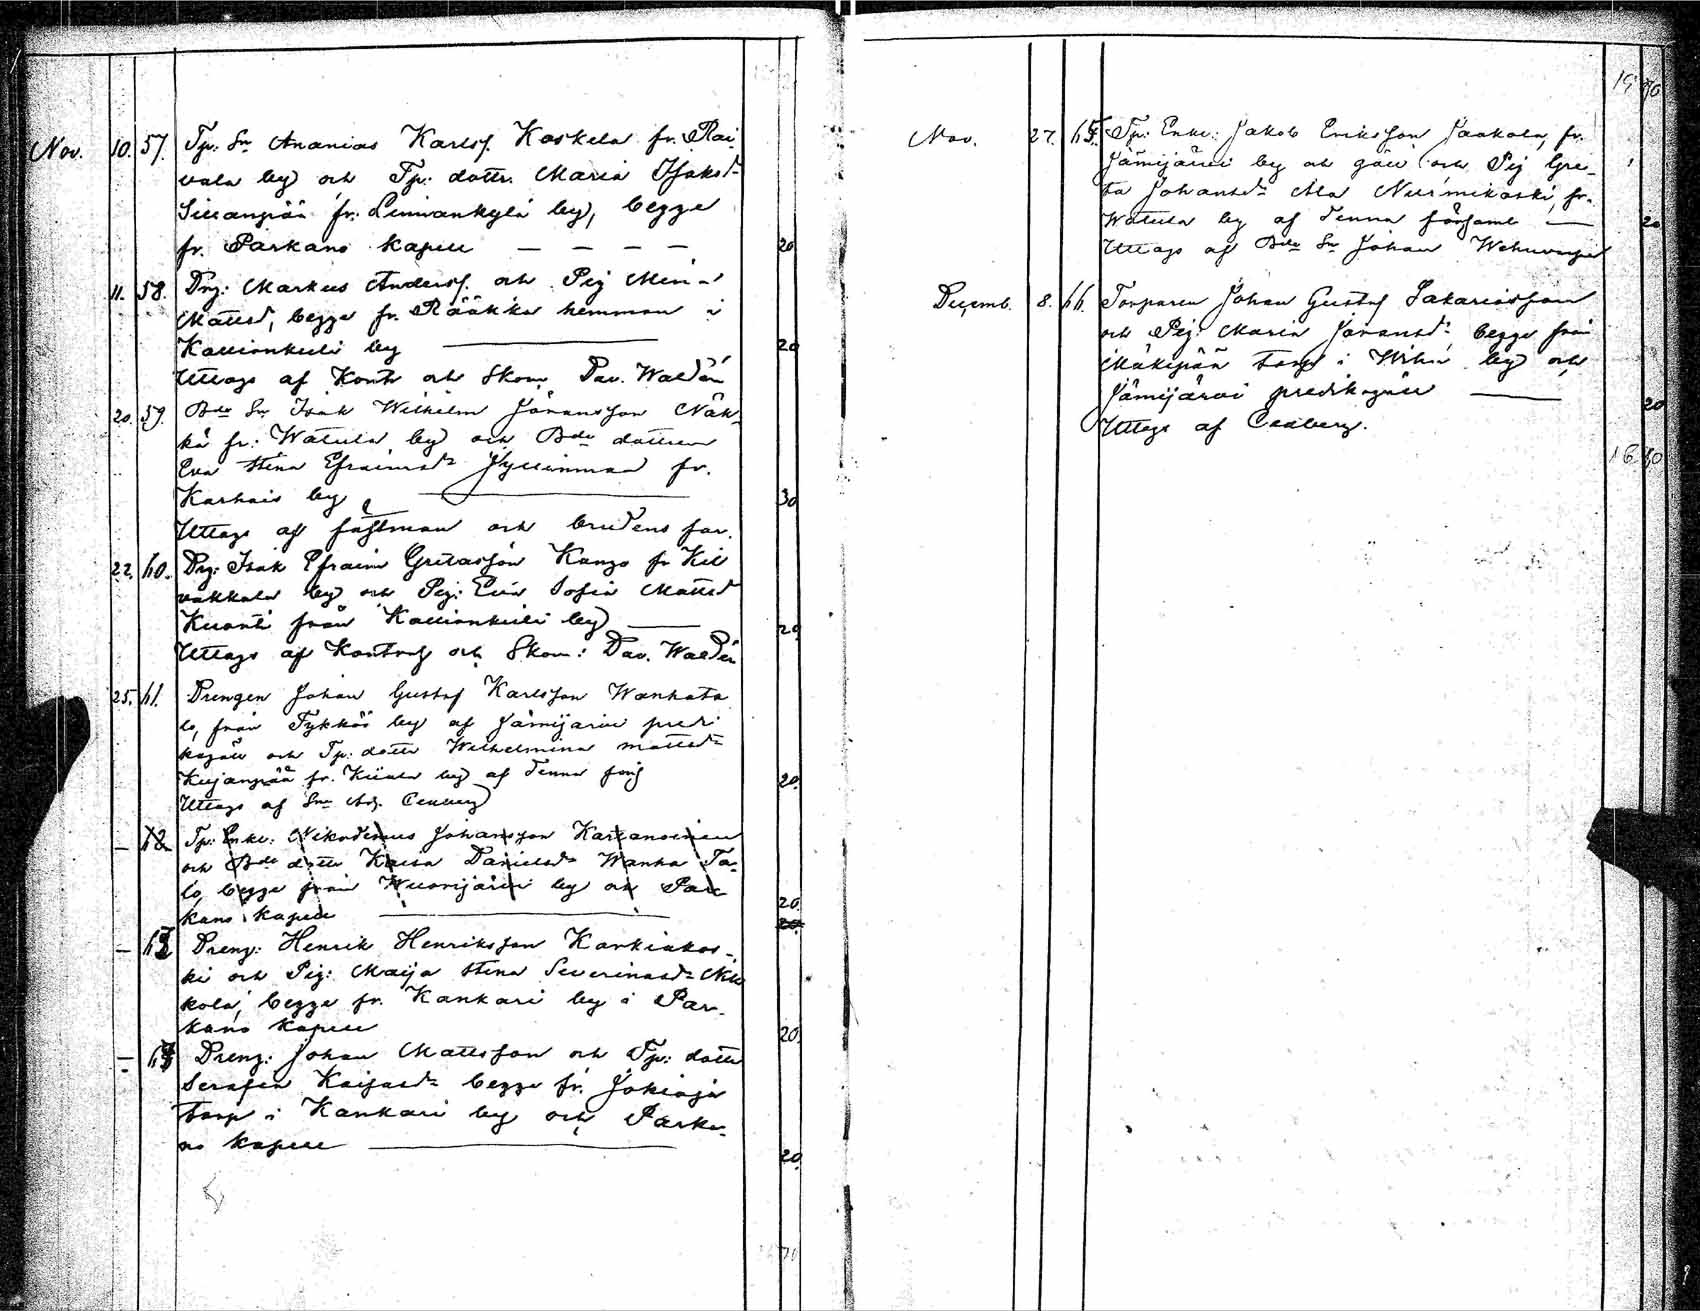 Nov. 10. 57. Tp: Sn Ananias Karlsf. Koskela fr. Rai
vala by och Tp: dottr. Maria Isaksdr
fr: Linnankylä by, begge
fr. Parkano kapell — — — — 20
11. 58. Drg: Markus Andersf. och Pig Mina
Mattsd, begge fr. Rääkkä hemman i
by —— 20
Uttogs af Kont och Skom. Dav. Waldén
20. 59. Bde Sn Isak Wilhelm Johansson Näk-
kä fr: Watula by och Bde dottren
Eva Stina Efraimsdr Jyllinmaa fr.
Karhais by —— 30
Uttogs af fästman och brudens far.
22. 60. Drg: Isak Efraim Kango fr Kil
vakkala by och Pig: Eva Sofia Mattsd
Kuonti från by —— 20
Uttogs af och Skom: Dav. Waldén
25. 61. Drengen Johan Gustaf Karlsson Wanhata
lo, från Tykköö by af Jämijärvi predi
kogäll och Tp: dottr Wilhelmina Mattsdr
Kujanpää fr. by af denna förs 20.
Uttogs af Cedberg
— 62 Tp: Enkl: Nikodemus Johansson
och Bde dottr Kaisa Danielsdr Wanha Ta-
lo, begge från Wuorijärvi by och Par
kano kapell —— 20
20
— 62 Dreng: Henrik Henriksson Kankiakos-
ki och Pig: Maija Stina Severinasdr Nik
kola, begge fr. Kankari by i Par-
kano kapell 20.
— 63 Dreng: Johan Mattsson och Tp: dottr
Serafia Kaisasdr begge fr. Jokioja
torp i Kankari by och Parka-
no kapell —— 20.
19 80
Nov. 27. 65. Tp: Enkl: Jakob Eriksson Jaakola, fr.
Jämijärvi by och gäll och Pig Gre-
ta Johansdr Ala Nurmikoski, fr.
Watula by af denna församl — 20
Uttogs af Bde Sn Johan
Decemb. 8. 66. Torparen Johan Gustaf Sakariasson
och Pig: Maria Johansdr begge från
Mäkipää torp i Wihu by och
Jämijärvi predikogäll —— 20
Uttogs af Cedberg.
16 60